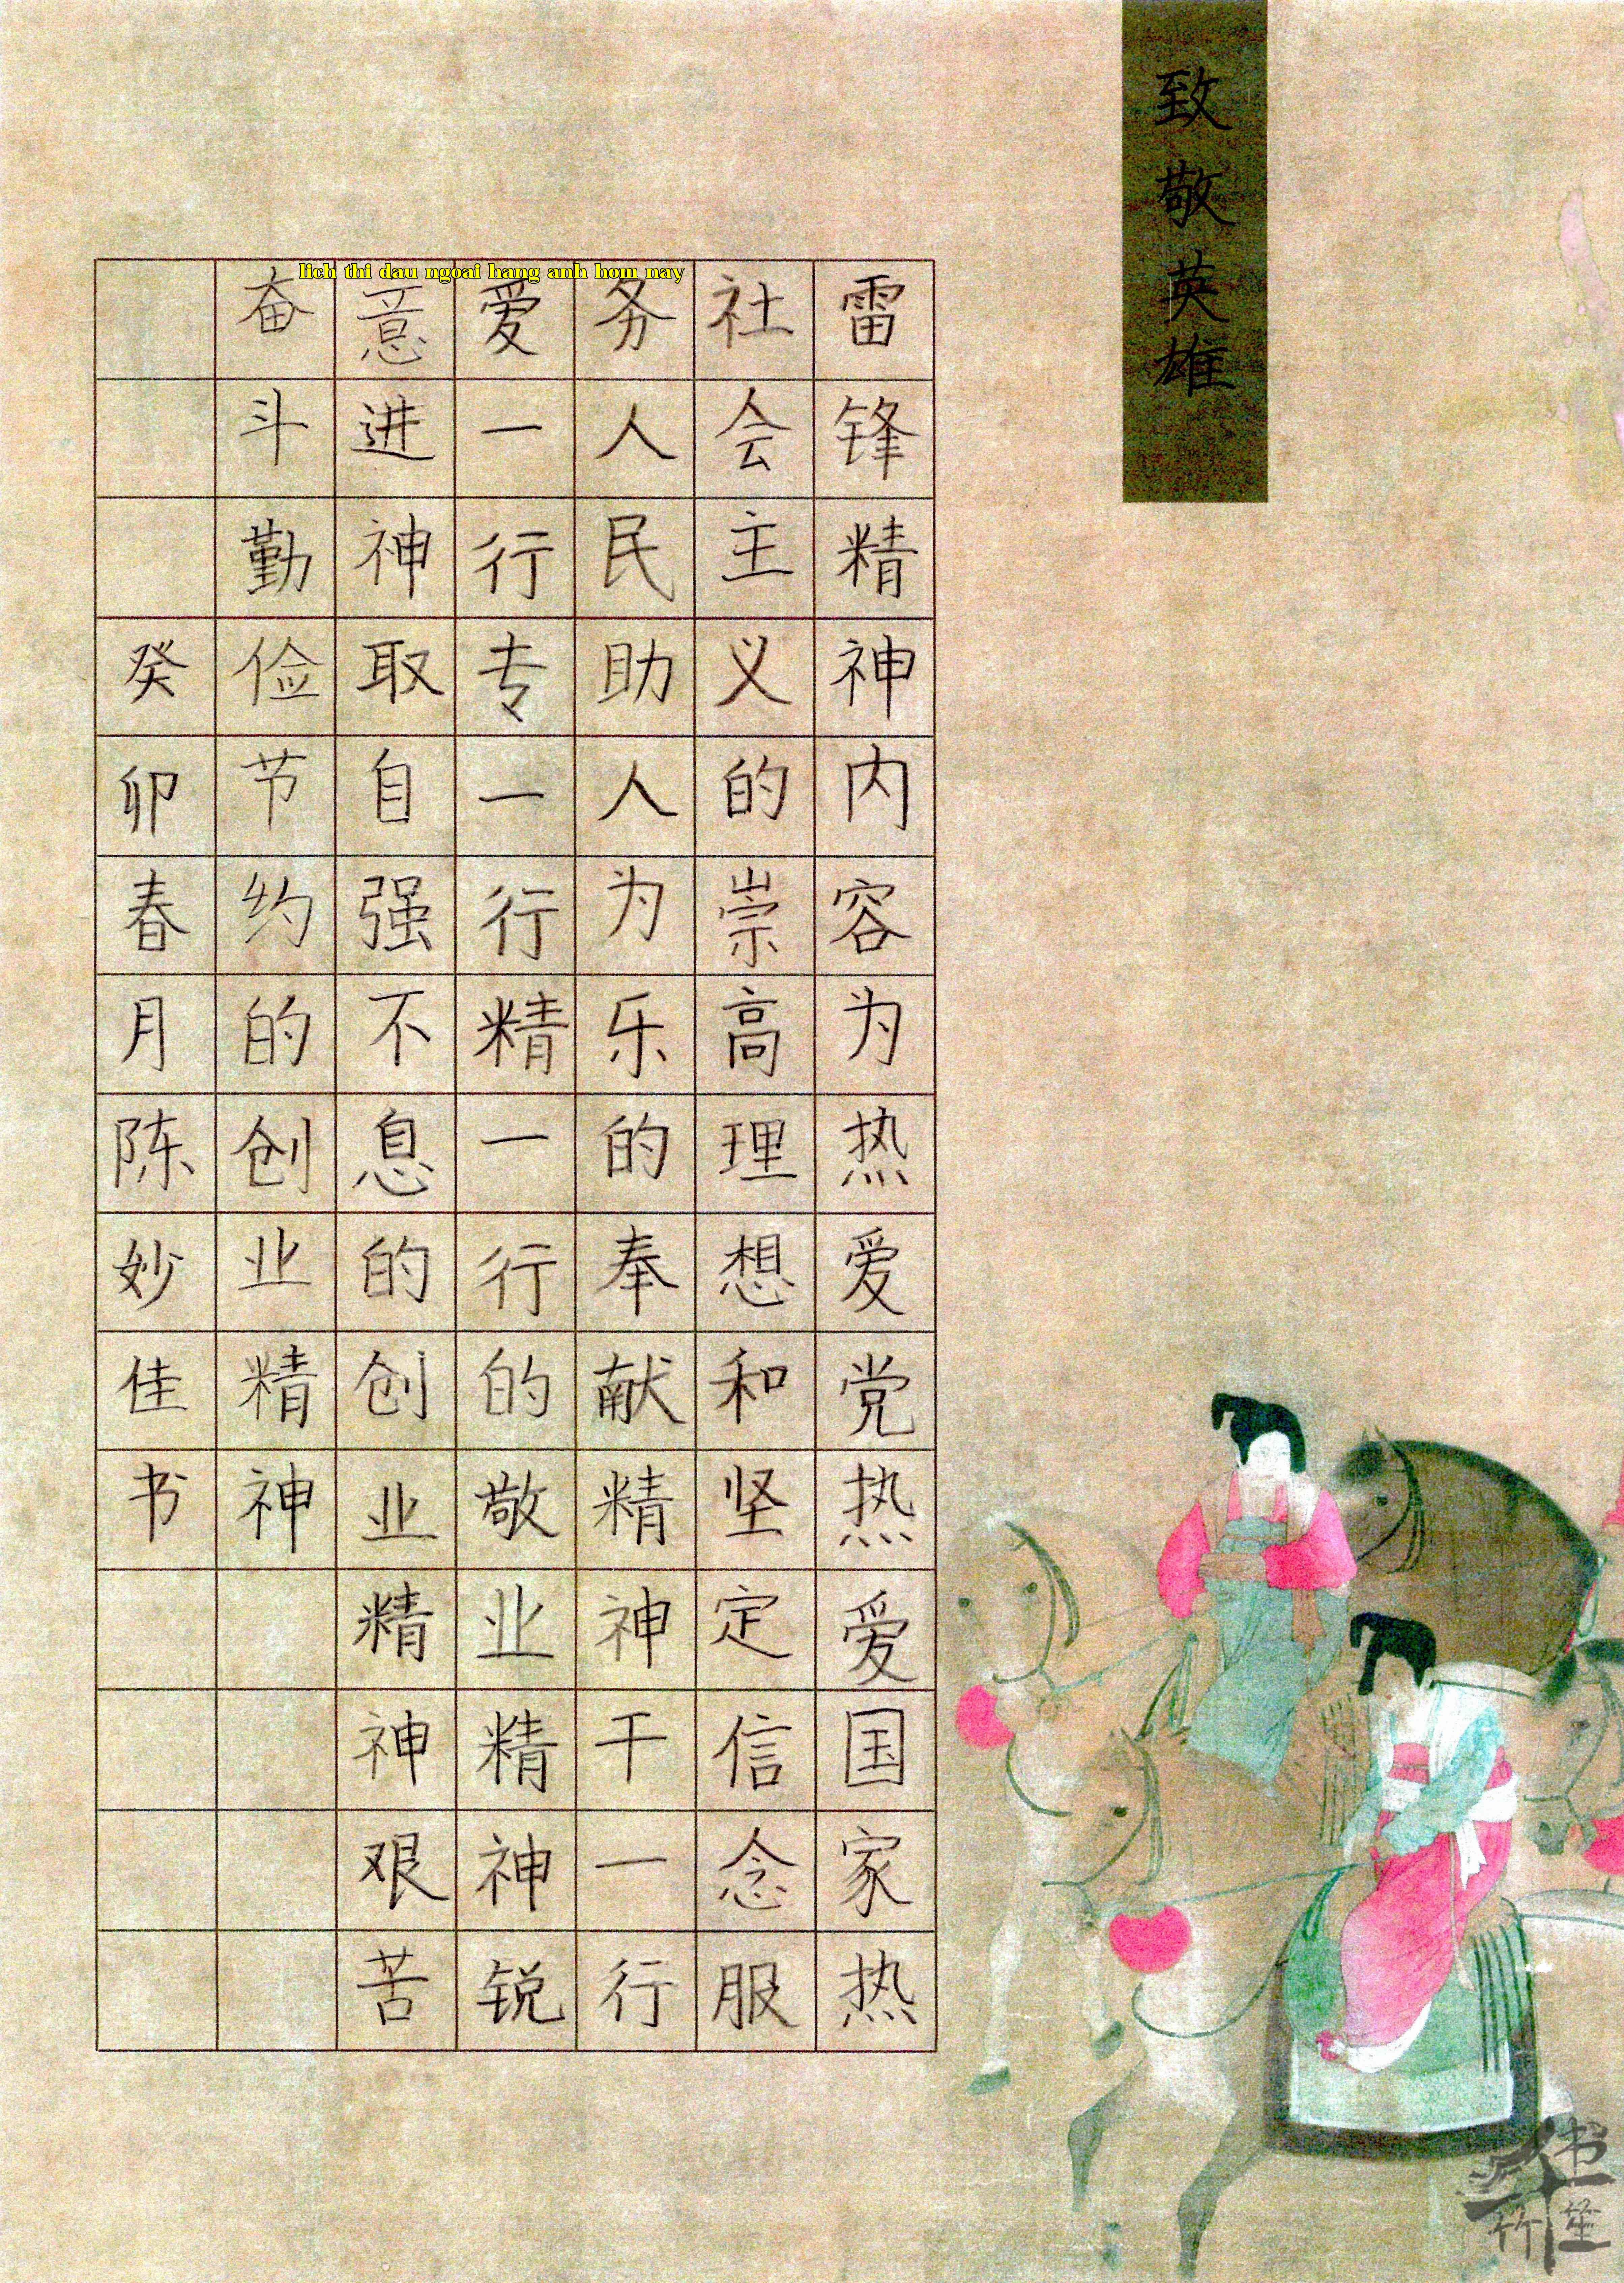 致敬英雄
雷锋精神内容为热爱党热爱国家热
社会主义的崇高理想和坚定信念服
务人民助人为乐的奉献精神干一行
爱一行专一行精一行的敬业精神锐
意进神取自强不息的创业精神艰苦
奋斗勤俭节约的创业精神
癸卯春月陈妙佳书
lich thi dau ngoai hang anh hom nay